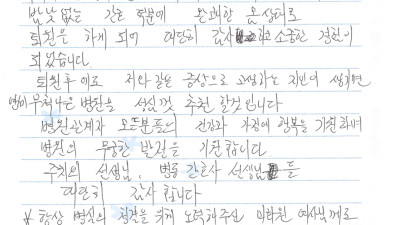 밤낮 없는 간호 덕분에 완쾌한 몸상태로
퇴원을 하게 되어 대단히 감사하고 소중한 경험이
되었습니다
퇴원후에도 저와 같은 증상으로 고생하는 지인이 생기면
병원을 성심껏 추천 할것입니다
병원관계자 모든분들의 건강과 가정에 행복을 기원하며
병원의 무궁한 발전을 기원합니다
주치의 선생님, 병동 간호사 선생님들
대단히 감사 합니다
* 항상 병실의 청결을 위해 노력해주신 미화원 여사님께도